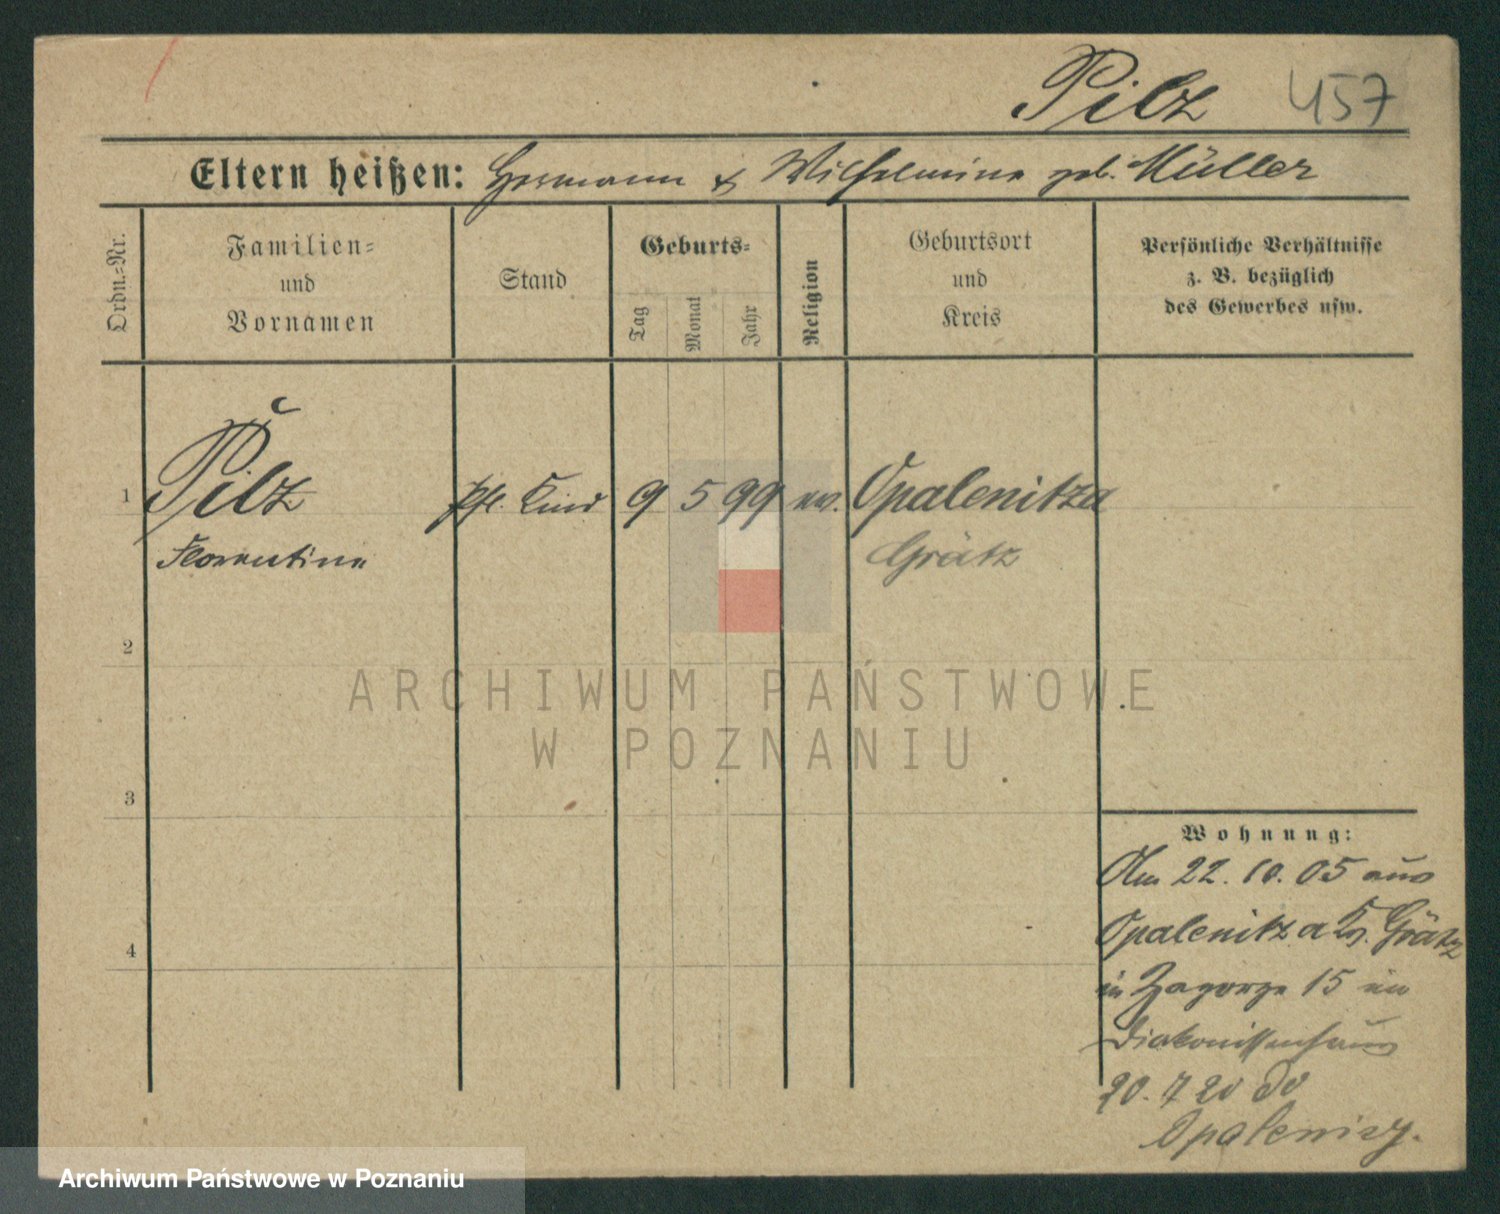 Pilz 457
Eltern heißen: Hermann & Wilhelmine geb. Müller
Ordn.-Nr.
Familien-
und
Vornamen
Stand
Geburts-
Tag
Monat
Jahr
Religion
Geburtsort
und
Kreis
Persönliche Verhältnisse
z. B. bezüglich
des Gewerbes usw.
1 Pilz Pfl. Kind 9 5 99 ev. Opalenitza
Florentine Grätz
2
3
4
Wohnung:
Am 22. 10. 05 aus
Opalenitza Kr. Grätz
in Zagorze 15 im
Diakonissenhaus
20. 7 20 do
Opalenicy.
ARCHIWUM PAŃSTWOWE
W POZNANIU
Archiwum Państwowe w Poznaniu